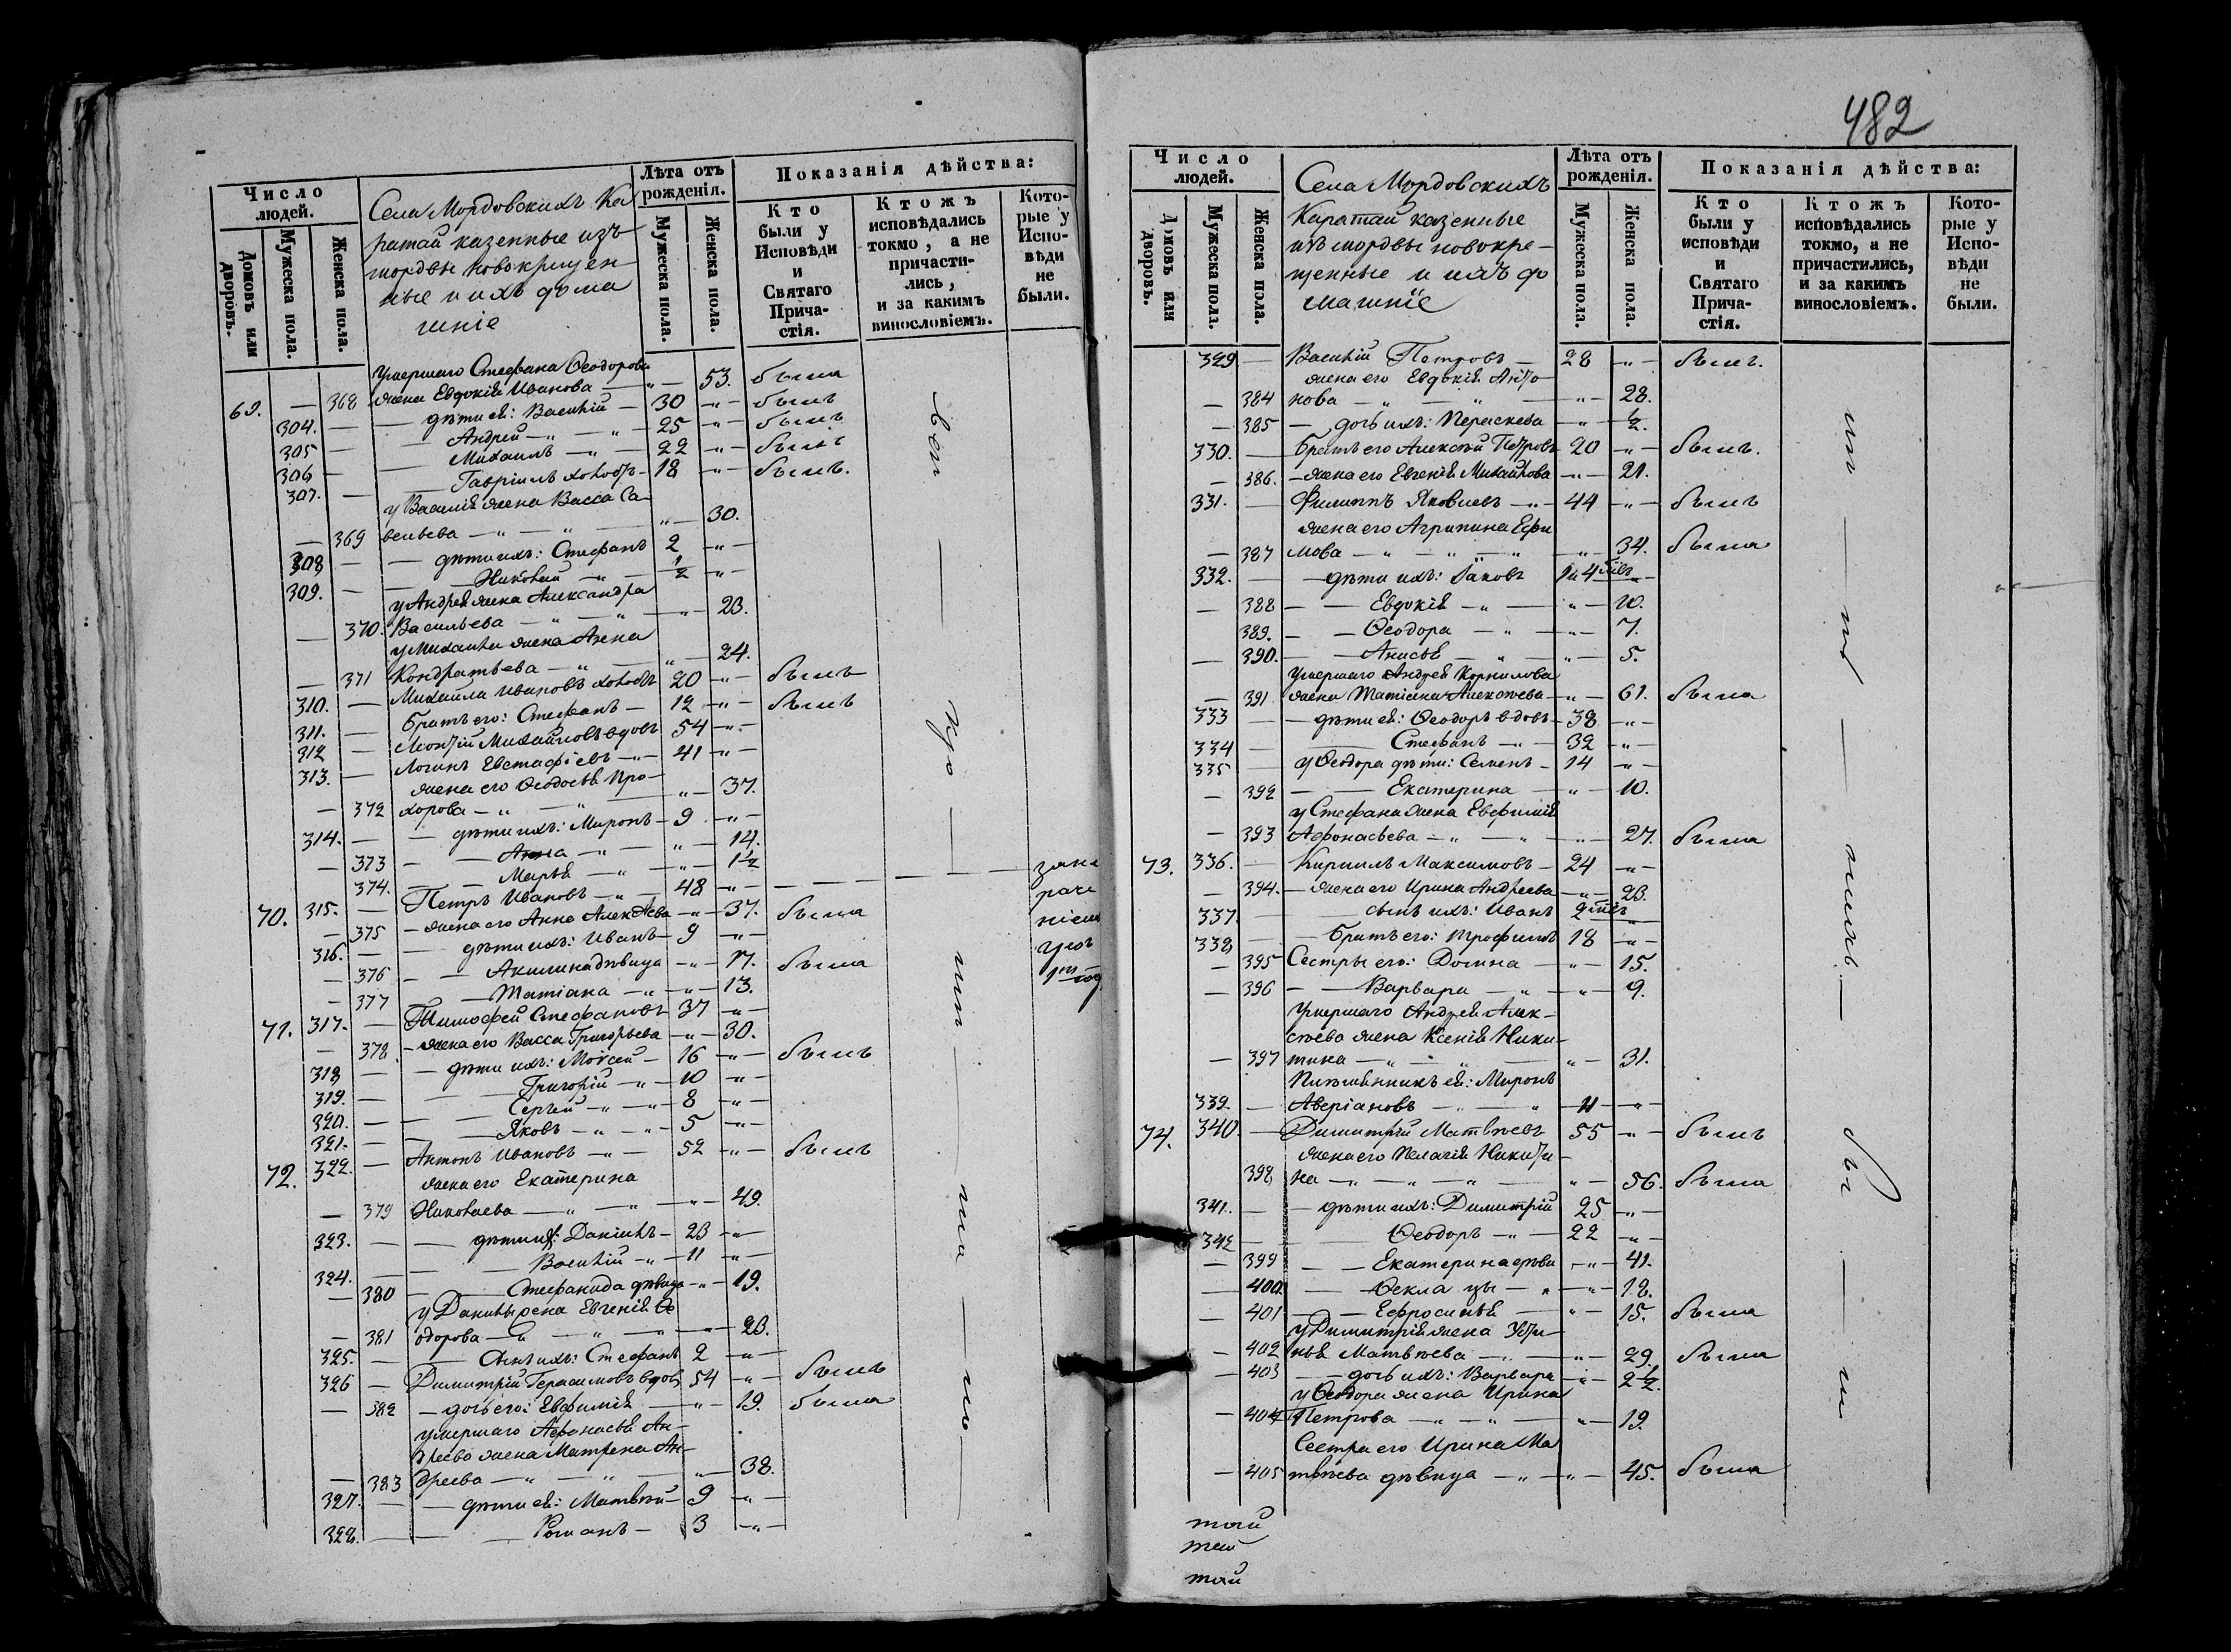 482
Число людей.
Домовъ или дворовъ.
Мужеска пола.
Женска пола.
Села Мордовскихъ Ка
ратай казенные изъ
мордвы новокрещен
ные и ихъ дома
шніе
Лѣта отъ рожденія.
Мужеска пола.
Женска пола.
Показанія дѣйства:
Кто были у Исповѣди и Святаго Прича-стія.
Ктожъ исповѣдались токмо, а не причасти-лись, и за какимъ винословіемъ.
Кото-рые у Испо-вѣди не были.
умершаго Стефана Ѳеодорова
69. — 368 жена Евдокія Иванова — „ — 53. была
304. — дѣти ея: Василій — 30 — „ — былъ
305 — Андрей — „ — „ — 25 — „ — былъ
306 — Михаилъ — „ — 22 — „ — былъ
307. — Гавріилъ холостъ — 18 — „ — былъ.
у Василія жена Васса Са-
— 369 вельева — „ — „ — „ — 30.
308 — дѣти ихъ: Стефанъ 2 — „ —
309. — Николай — „ — 1/2 — „ —
у Андрея жена Александра
— 370. Васильева — „ — „ — „ — 23.
у Михаила жена Анна
— 371 Кондратьева — „ — „ — 24.
310. — Михайла Ивановъ холостъ 20 — „ — былъ
311. — братъ его: Стефанъ — 12 — „ — былъ
312 — Михайловъ вдовъ 54 — „ —
313. — Логинъ Евстафіевъ — „ — 41 — „ —
жена его Ѳеодосья Про-
— 372 хорова — „ — „ — „ — 37.
314. — дѣти ихъ: Миронъ — 9 — „ —
— 373 — Анна — „ — „ — 14.
374. — Марья — „ — „ — 1 1/2
70. 315. — Петръ Ивановъ — „ — 48 — „ —
— 375 — жена его Анна Алексѣева — „ — 37. была
316. — дѣти ихъ: Иванъ — 9 — „ —
— 376 — Акилина дѣвица — „ — 17. была
— 377 — Татіана — „ — „ — 13.
71. 317. — Тимофей Стефановъ 37 — „ —
— 378. — жена его Васса Григорьева — „ — 30.
318 — дѣти ихъ: Моѵсей — 16 — „ — былъ
319. — Григорій — „ — 10 — „ —
320. — Сергѣй — „ — „ — 8 — „ —
321. — Яковъ — „ — „ — 5 — „ —
72. 322. — Антонъ Ивановъ — „ — 52 — „ — былъ
жена его Екатерина
— 379 Николаева — „ — „ — „ — 49.
323. — дѣти ихъ: Даніилъ — 23 — „ —
324. — Василій — „ — 11 — „ —
— 380 — Стефанида дѣвица — „ — 19.
у Данилы жена Евгенія Ѳе
— 381 одорова — „ — „ — „ — 23.
325. — сынъ ихъ: Стефанъ 2 — „ —
326 — Димитрій Герасимовъ вдовъ 54 — „ — былъ
— 382 — дочь его: Евфимія — „ — 19. была
умершаго Афонасья Ан-
дреева жена Матрена Ан-
— 383 дреева — „ — „ — „ — 38.
327. — дѣти ея: Матвѣй — 9 — „ —
328. — Романъ — 3 — „ —
Число людей.
Домовъ или дворовъ.
Мужеска пола.
Женска пола.
Села Мордовскихъ
Каратай казенные
изъ мордвы новокре-
щенные и ихъ до
машніе
Лѣта отъ рожденія.
Мужеска пола.
Женска пола.
Показанія дѣйства:
Кто были у исповѣди и Святаго Прича-стія.
Ктожъ исповѣдались токмо, а не причастились, и за какимъ винословіемъ.
Кото-рые у Испо-вѣди не были.
329 — Василій Петровъ — 28 — „ — былъ.
жена его Евдокія Анто-
— 384 нова — „ — „ — „ — 28.
— 385 — дочь ихъ: Параскева — „ — 1/2.
330. — братъ его Алексѣй Петровъ 20 — „ — былъ.
— 386. — жена его Евгенія Михайлова — „ — 21.
331. — Филиппъ Яковлевъ — „ — 44 — „ — былъ
жена его Агрипина Ефи
— 387 мова — „ — „ — „ — „ — 34. была
332. — дѣти ихъ: Іаковъ
— 388 — Евдокія — „ — „ — 10.
389. — Ѳеодора — „ — „ — 7.
— 390. — Анисья — „ — „ — 5.
умершаго Андрея Корнилова
— 391 жена Татіана Алексѣева — „ — 61. была
333 — дѣти ея: Ѳеодоръ вдовъ — 38 — „ —
334 — Стефанъ — „ — 32 — „ —
335 у Ѳеодора дѣти: Семенъ — 14 — „ —
— 392 — Екатерина — „ — 10.
у Стефана жена Евфимія
— 393 Афонасьева — „ — „ — 27. была
73. 336. — Кириллъ Максимовъ — 24 — „ —
— 394. — жена его Ирина Андреева — „ — 23.
337. — сынъ ихъ: Иванъ
338 — братъ его: Трофимъ 18 — „ —
— 395 Сестры его: Домна — „ — 15.
— 396 — Варвара — „ — „ — 9.
умершаго Андрея Алек-
сѣева жена Ксенія Ники-
— 397 тина — „ — „ — „ — 31.
Племянникъ ея: Миронъ
339. — Аверіановъ — „ — „ — 11 — „ —
74. 340. — Димитрій Матвѣевъ 55 — „ — былъ
жена его Пелагія Никити-
398 на — „ — „ — „ — „ — 56. была
341. — дѣти ихъ: Димитрій 25 — „ —
342 — Ѳеодоръ — „ — 22 — „ —
— 399 — Екатерина дѣви — „ — 41.
— 400. — Ѳекла цы — „ — „ — 18.
— 401 — Ефросинья — „ — 15. была
у Димитрія жена Усти-
— 402 нья Матвѣева — „ — „ — 29. была
— 403 — дочь ихъ: Варвара — „ — 2 1/2.
у Ѳеодора жена Ирина
— 404 Петрова — „ — „ — „ — 19.
Сестра его Ирина Ма
— 405 твѣева дѣвица — „ — „ — 45. была